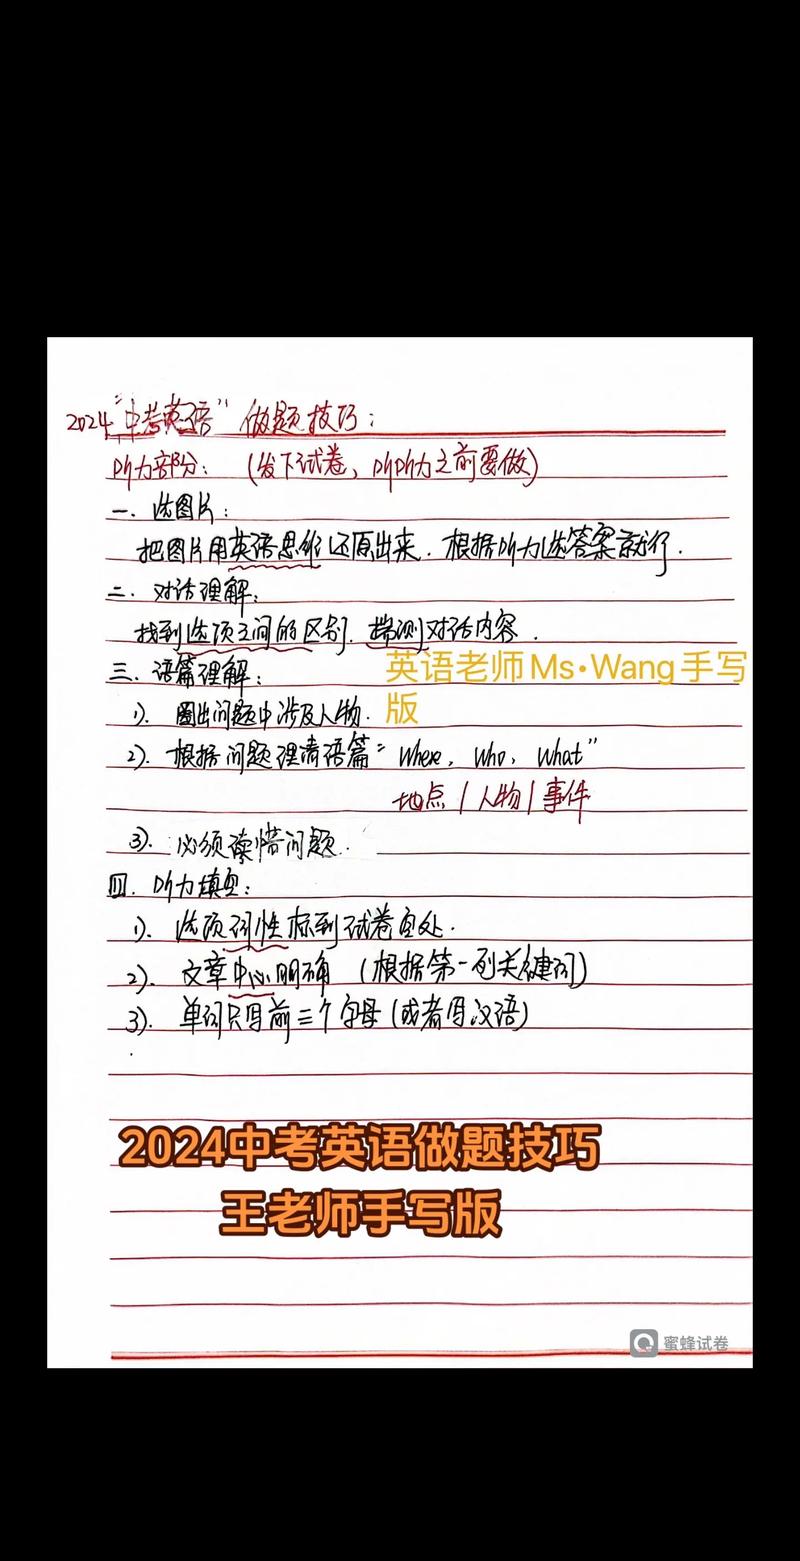 2024“中考英语”做题技巧：
听力部分：（发下试卷，听听力之前要做）
一．选图片：
把图片用英语思维还原出来．根据听力选答案就行．
二．对话理解：
找到选项之间的区别．揣测对话内容．
三．语篇理解：
英语老师Ms•Wang手写
版
1）．圈出问题中涉及人物．
2）．根据问题理清语篇“Where，Who，What”
地点/人物/事件
3）．必须读懂问题．
四．听力填空：
1）．选项词性标到试卷空处．
2）．文章中心明确（根据第一列关键词）
3）．单词只写前三个字母（或者写汉语）
2024中考英语做题技巧
王老师手写版
蜜蜂试卷